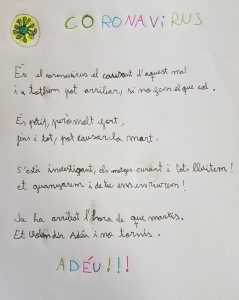 CORONAVIRUS
És el coronavirus el causant d'aquest mal
i a tothom pot arribar, si no fem el que cal.
És petit, però molt fort,
fins i tot, pot causar la mort.
S'està investigant, els metges curant i tots lluitem!
et guanyarem i de tu ens en riurem!
Ja ha arribat l'hora de que marxis.
Et volem dir Adéu i no tornis.
ADÉU!!!